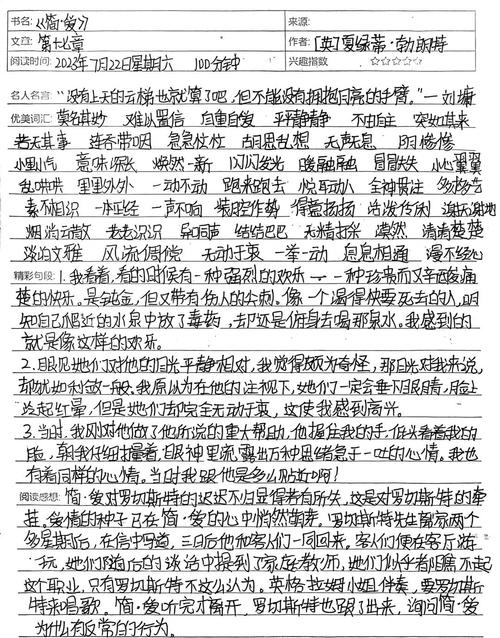 书名:《简·爱》 来源:
文章: 第十七章 作者: [英]夏绿蒂·勃朗特
阅读时间: 2023年7月22日星期六 100分钟 兴趣指数 ☆☆☆☆☆
名人名言:“没有上天的云梯也就算了吧,但不能没有拥抱月亮的手臂。”—刘墉
优美词汇: 莫名其妙 难以置信 自重自爱 平平静静 不由自主 突如其来
若无其事 连吞带咽 急急忙忙 胡思乱想 无声无息
小里小气 意味深长 焕然一新 闪闪发光 暖融融 冒冒失失 小心翼翼
乱哄哄 里里外外 一动不动 跑来跑去 悦耳动人 全神贯注
素不相识 一本正经 一声不响 装腔作势 得意扬扬 谢天谢地
烟消云散 老老实实 异口同声 结结巴巴 无精打采 清清楚楚
谈吐文雅 风流倜傥 无动于衷 一举一动 息息相通 漫不经心
精彩句段: 1.我看着,看的时候有一种强烈的欢乐——一种珍贵而又辛酸痛
楚的快乐。是纯金,但又带有伤人的尖刺。像一个渴得快要死去的人,明
知自己爬近的水泉中放了毒药,却还是俯身去喝那泉水。我感到的
就是像这样的欢乐。
2.眼见她们对他的目光平静相对,我觉得颇为奇怪,那目光对我来说,
却犹如利剑一般。我原以为在他的注视下,她们一定会垂下眼睛,脸上
泛起红晕,但是她们却完全无动于衷,这使我感到高兴。
3.当时,我刚对他做了他所说的重大帮助,他握住我的手,低头看着我的
脸,朝我仔细打量着,眼神里流露出万种思绪急于一吐的心情。我也
有着同样的心情。当时我跟他是多么贴近啊!
阅读感想: 简·爱对罗切斯特的迟迟不归显得若有所失,这是对罗切斯特的牵
挂。爱情的种子已在简·爱的心中悄然萌芽。罗切斯特先生离家两个
多星期后,在信中写道,三日后他和客人们一同回来。客人们便在客厅游
玩,她们随后的谈话中提到了家庭教师,她们似乎者瞧不起
这个职业,只有罗切斯特不这么认为。英格拉姆小姐伴奏,要罗切斯
特来唱歌。简·爱听完才离开,罗切斯特也跟了出来,询问简·爱
为什么有反常的行为。